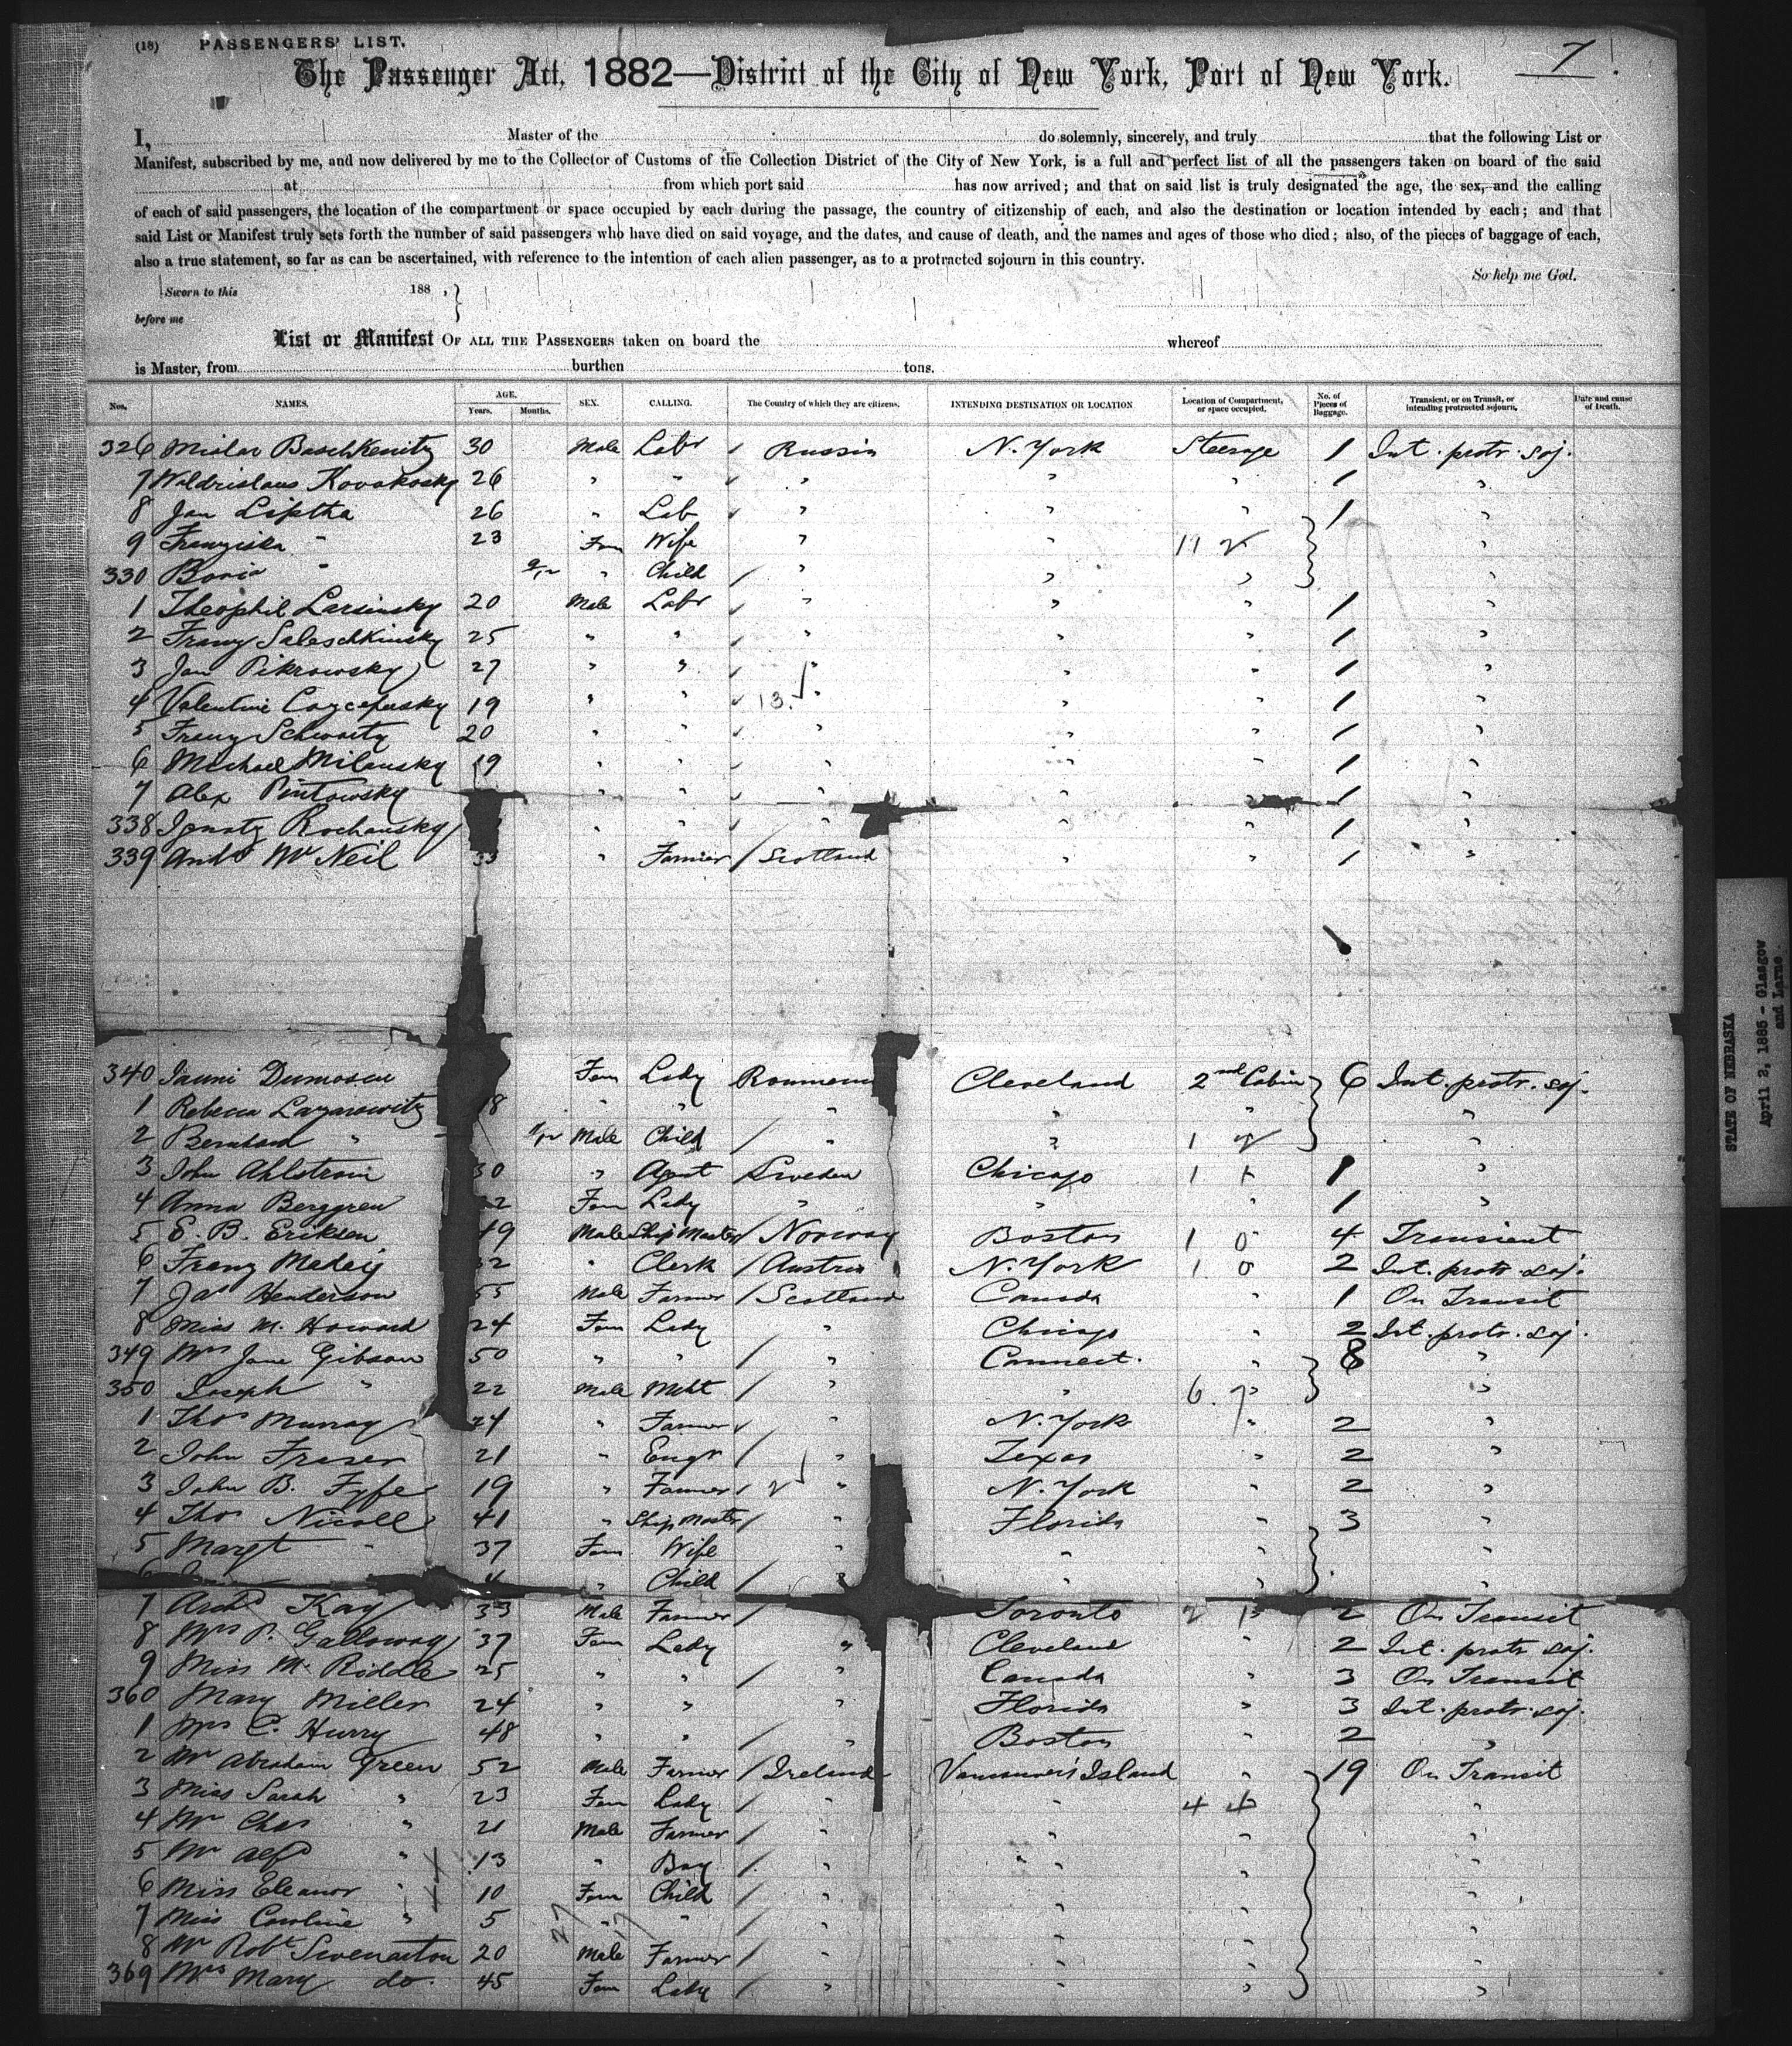 (18) PASSENGERS' LIST.
7
The Passenger Act, 1882—District of the City of New York, Port of New York.
I, Master of the do solemnly, sincerely, and truly that the following List or
Manifest, subscribed by me, and now delivered by me to the Collector of Customs of the Collection District of the City of New York, is a full and perfect list of all the passengers taken on board of the said
at from which port said has now arrived; and that on said list is truly designated the age, the sex, and the calling
of each of said passengers, the location of the compartment or space occupied by each during the passage, the country of citizenship of each, and also the destination or location intended by each; and that
said List or Manifest truly sets forth the number of said passengers who have died on said voyage, and the dates, and cause of death, and the names and ages of those who died; also, of the pieces of baggage of each,
also a true statement, so far as can be ascertained, with reference to the intention of each alien passenger, as to a protracted sojourn in this country.
So help me God.
Sworn to this 188 , }
before me
List or Manifest OF ALL THE PASSENGERS taken on board the whereof
is Master, from burthen tons.
Nos. NAMES. AGE. Years. Months. SEX. CALLING. The Country of which they are citizens. INTENDING DESTINATION OR LOCATION Location of Compartment, or space occupied. No. of Pieces of Baggage. Transient, or on Transit, or intending protracted sojourn. Date and cause of Death.
326 30 Male Labr / Russia N. York Steerage 1 Int. protr. soj.
7 Woldrislaus Kovakosky 26 " " " " " 1 "
8 Jan Liptha 26 " Lab " " " 1 "
9 Franziska " 23 Fem Wife " " 11 "
330 " 9/12 " Child / " " " "
1 Theophil Larsinsky 20 Male Labr " " " 1 "
2 Franz Saleschkinsky 25 " " " " " 1 "
3 Jan Pikrowsky 27 " " " " " 1 "
4 Valentine 19 " " 13 " " " 1 "
5 Franz Schwartz 20 " " " " " 1 "
6 Michael Milansky 19 " " " " " 1 "
7 Alex Pintowsky " " " " " 1 "
338 Ignatz Rochansky " " " " " 1 "
339 Andw McNeil 33 " Farmer / Scotland " " 1 "
340 Dumoscu Fem Lady Roumenia Cleveland 2nd Cabin 6 Int. protr. soj.
1 Rebecca Lazarowitz 8 " " " " " "
2 Bernhard " 11/12 Male Child / " " 1 "
3 John Ahlstrom 30 " Agent Sweden Chicago 1 1 "
4 Anna Berggren 2 Fem Lady " " " 1 "
5 E. B. Eriksen 49 Male Ship Master / Norway Boston 1 0 4 Transient
6 Franz 32 " Clerk / Austria N. York 1 0 2 Int. protr. soj.
7 Jas Henderson 55 Male Farmer / Scotland Canada " 1 On Transit
8 Miss M. Howard 24 Fem Lady " Chicago " 2 Int. protr. soj.
349 Mrs Jane Gibson 50 " " / " Connect. " 8 "
350 Joseph " 22 Male Mcht / " " 6 7 "
1 Thos Murray 24 " Farmer " N. York " 2 "
2 John Fraser 21 " Engr / " Texas " 2 "
3 John B. Fyfe 19 " Farmer " N. York " 2 "
4 Thos Nicoll 41 " Ship Master / " Florida " 3 "
5 Margt " 37 Fem Wife " " " "
6 " Child / " " " "
7 Archd Kay 33 Male Farmer / Toronto 2 1 2 On Transit
8 Mrs P. Galloway 37 Fem Lady " Cleveland " 2 Int. protr soj.
9 Miss M. Riddle 25 " " / " Canada " 3 On Transit
360 Mary Miller 24 " " " Florida " 3 Int. protr. soj.
1 Mrs C. Hurry 48 " " / " Boston 2 "
2 Mr Abraham Green 52 Male Farmer / Ireland Vancouver's Island " 19 On Transit
3 Miss Sarah " 23 Fem Lady / " " 4 4 "
4 Mr Chas " 21 Male Farmer / " " " "
5 Mr Alfd " 13 " Boy / " " " "
6 Miss Eleanor " 10 Fem Child / " " " "
7 Miss Caroline " 5 " " / " " " "
8 Mr Robt Swenarton 20 Male Farmer / " " " "
369 Mrs Mary do. 45 Fem Lady / " " " "
27
STATE OF NEBRASKA
April 2, 1885 - Glasgow
and Larne